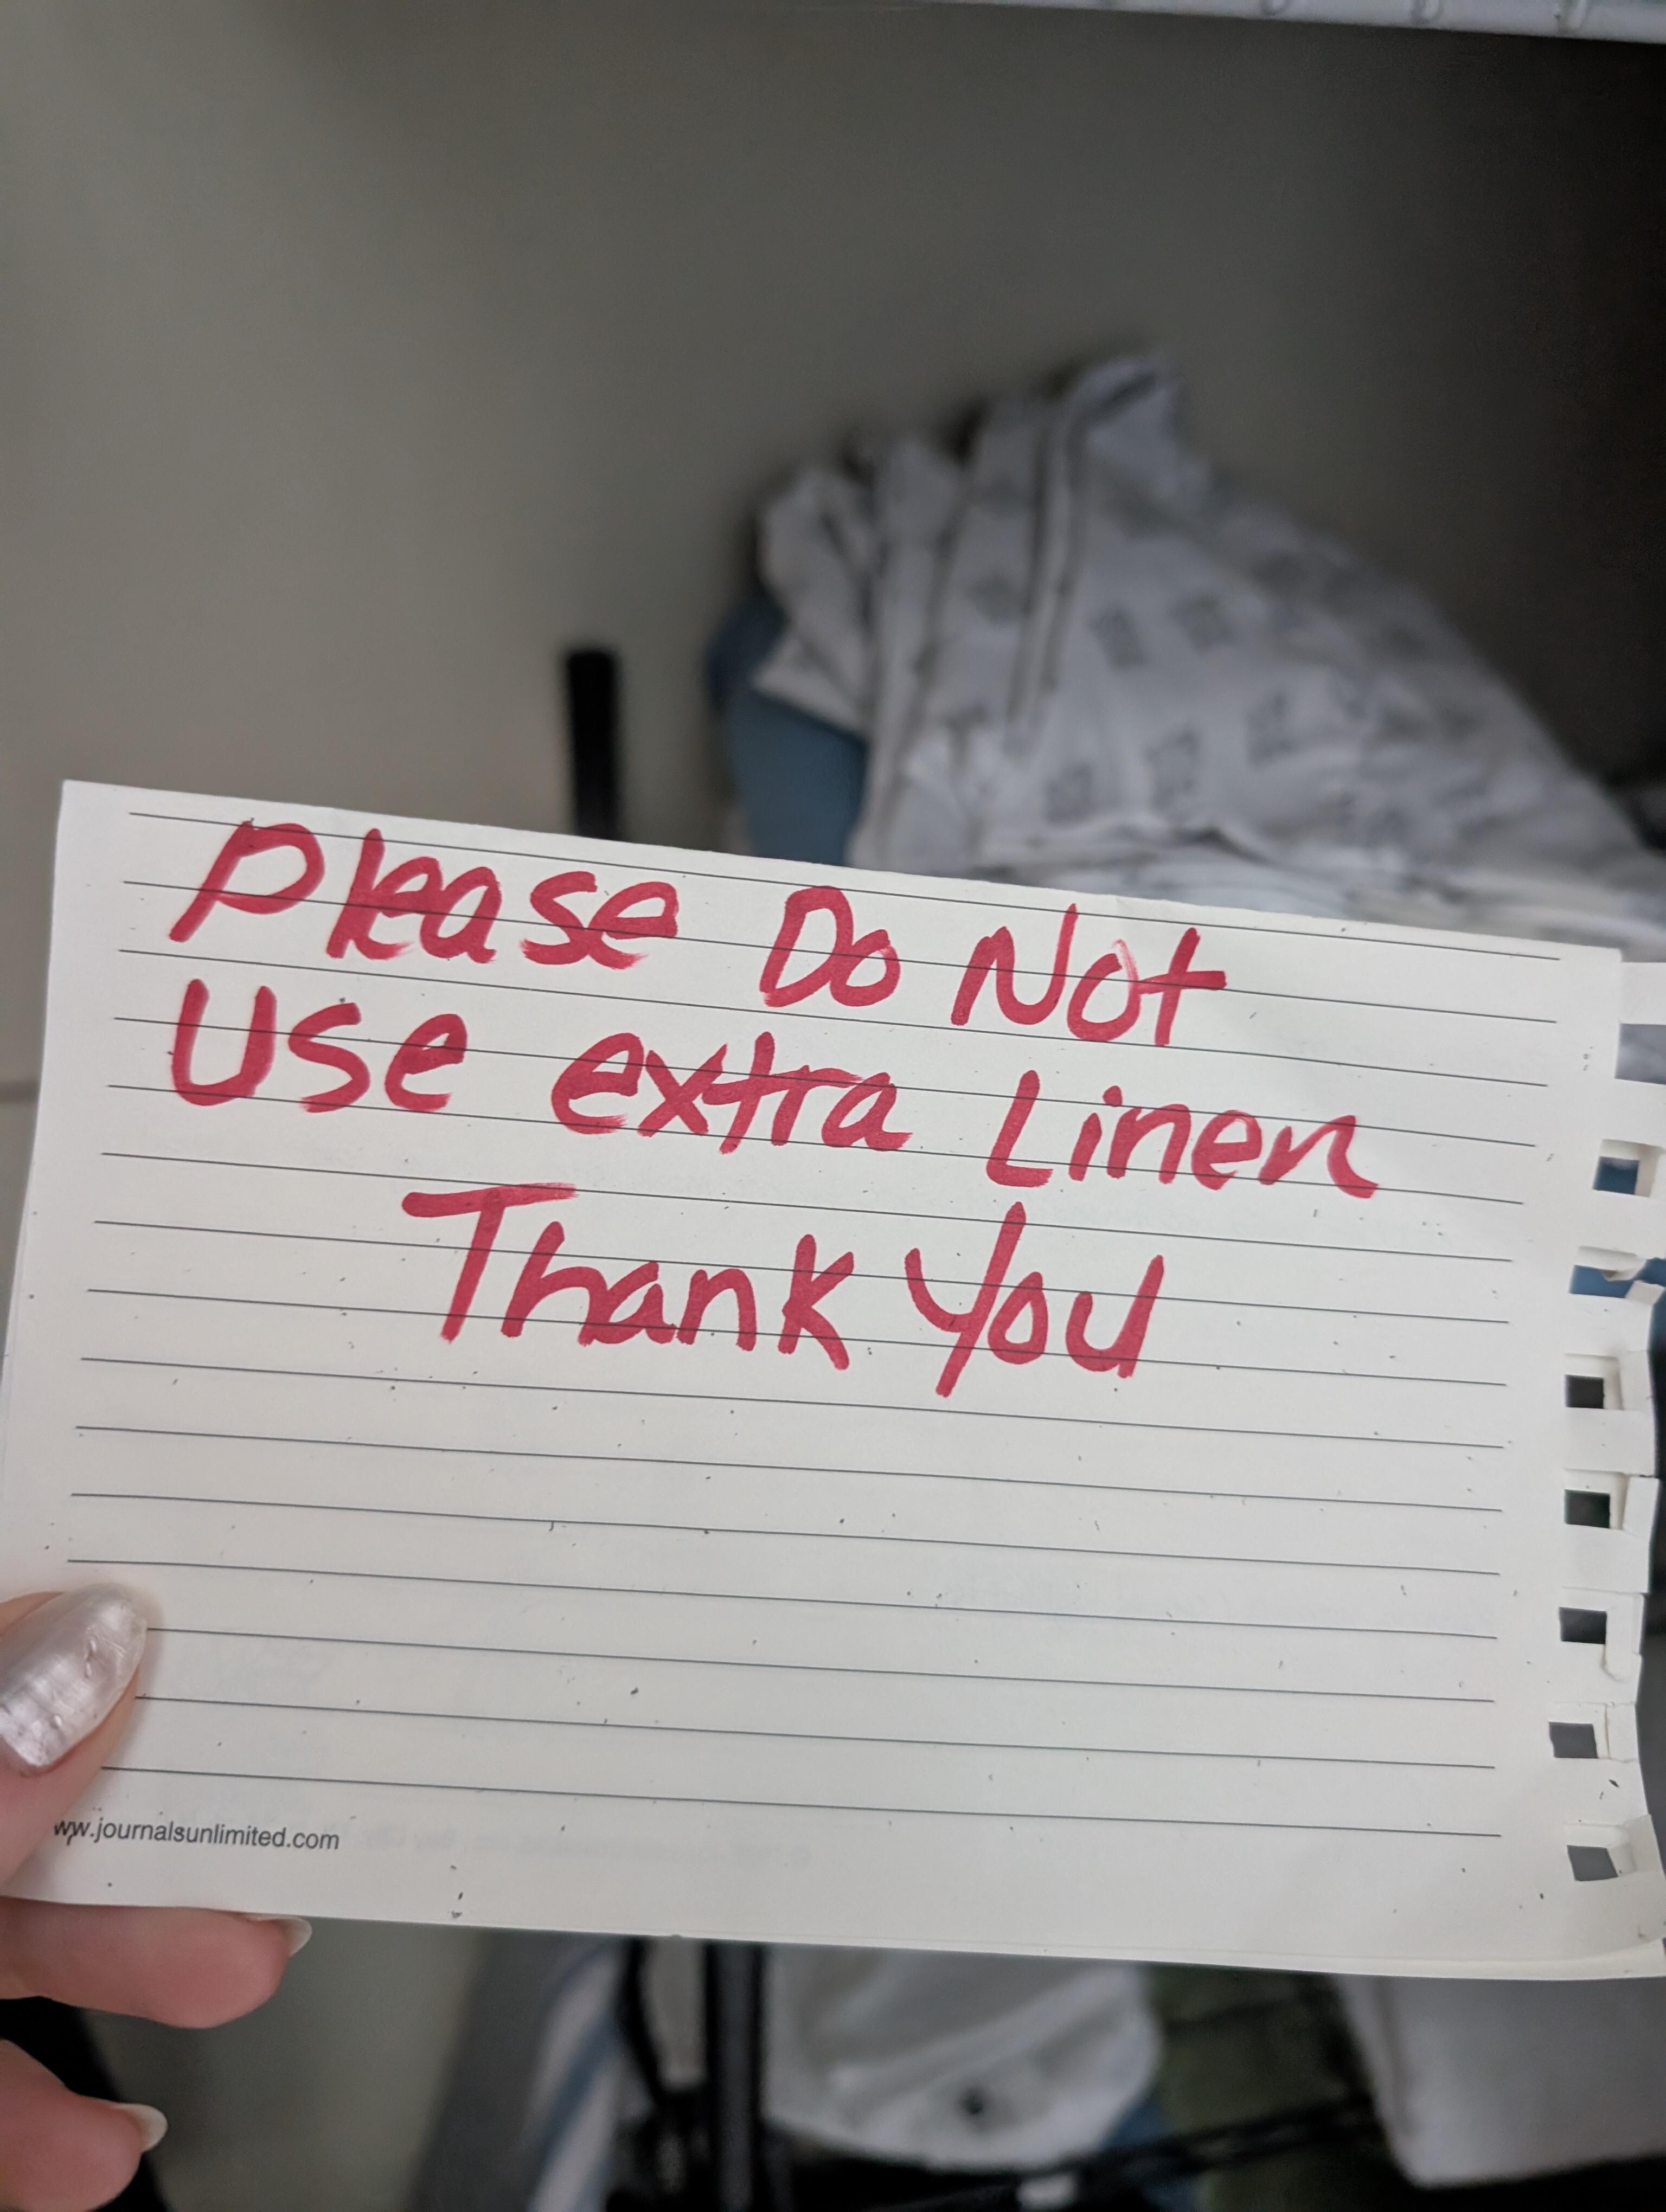 Please Do Not
Use extra Linen
Thank You
ww.journalsunlimited.com